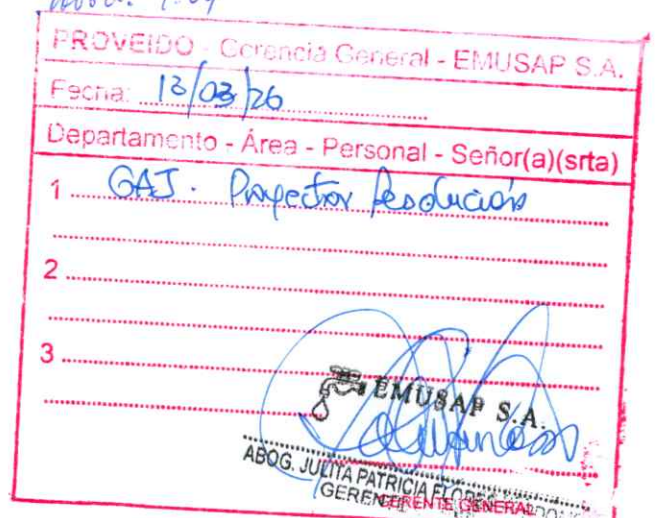 PROVEIDO - Gerencia General - EMUSAP S.A.
Fecha: 13/03/26
Departamento - Área - Personal - Señor(a)(srta)
1 GAJ. Proyectar Resolución
2
3
EMUSAP S.A.
ABOG. JULITA PATRICIA
GERENTE GENERAL